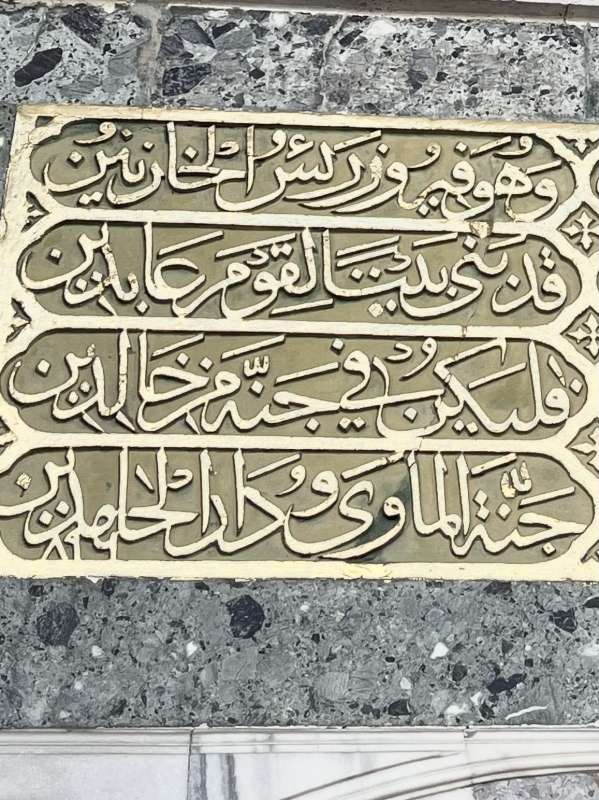 وهو فيروز رئس الخازنين
قد بنى بيتا لقوم عابدين
فليكن في جنة من خالدين
جنة المأوى ودار الخلد